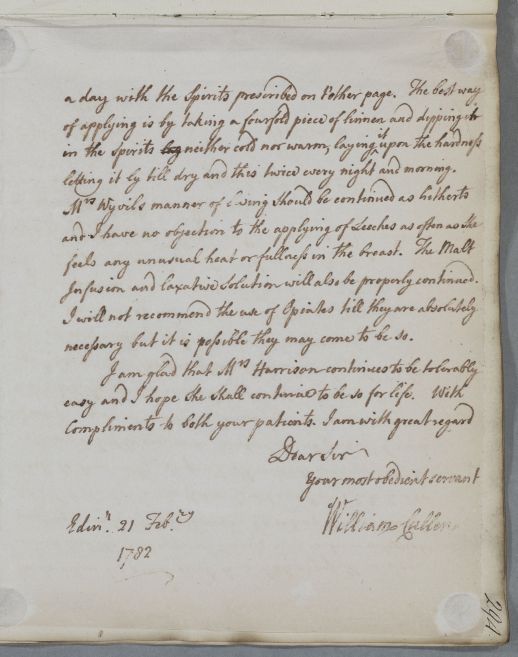 a day with the Spirits prescribed on t'other page. The best way
of applying is by taking a fourfold piece of linnen and dipping it
in the Spirits neither cold nor warm, laying it upon the hardness
letting it ly till dry and this twice every night and morning.
Mrs Wyvils manner of living should be continued as hitherto
and I have no objection to the applying of Leeches as often as She
feels any unusual heat or fullness in the breast. The Malt
Infusion and Laxative Solution will also be properly continued.
I will not recommend the use of Opiates till they are absolutely
necessary but it is possible they may come to be so.
I am glad that Mrs Harrison continues to be tolerably
easy and I hope she shall continue to be so for life. With
Compliments to both your patients. I am with great regard
Dear Sir
Your most obedient servant
William Cullen
Edinr. 21 Febry
1782
264